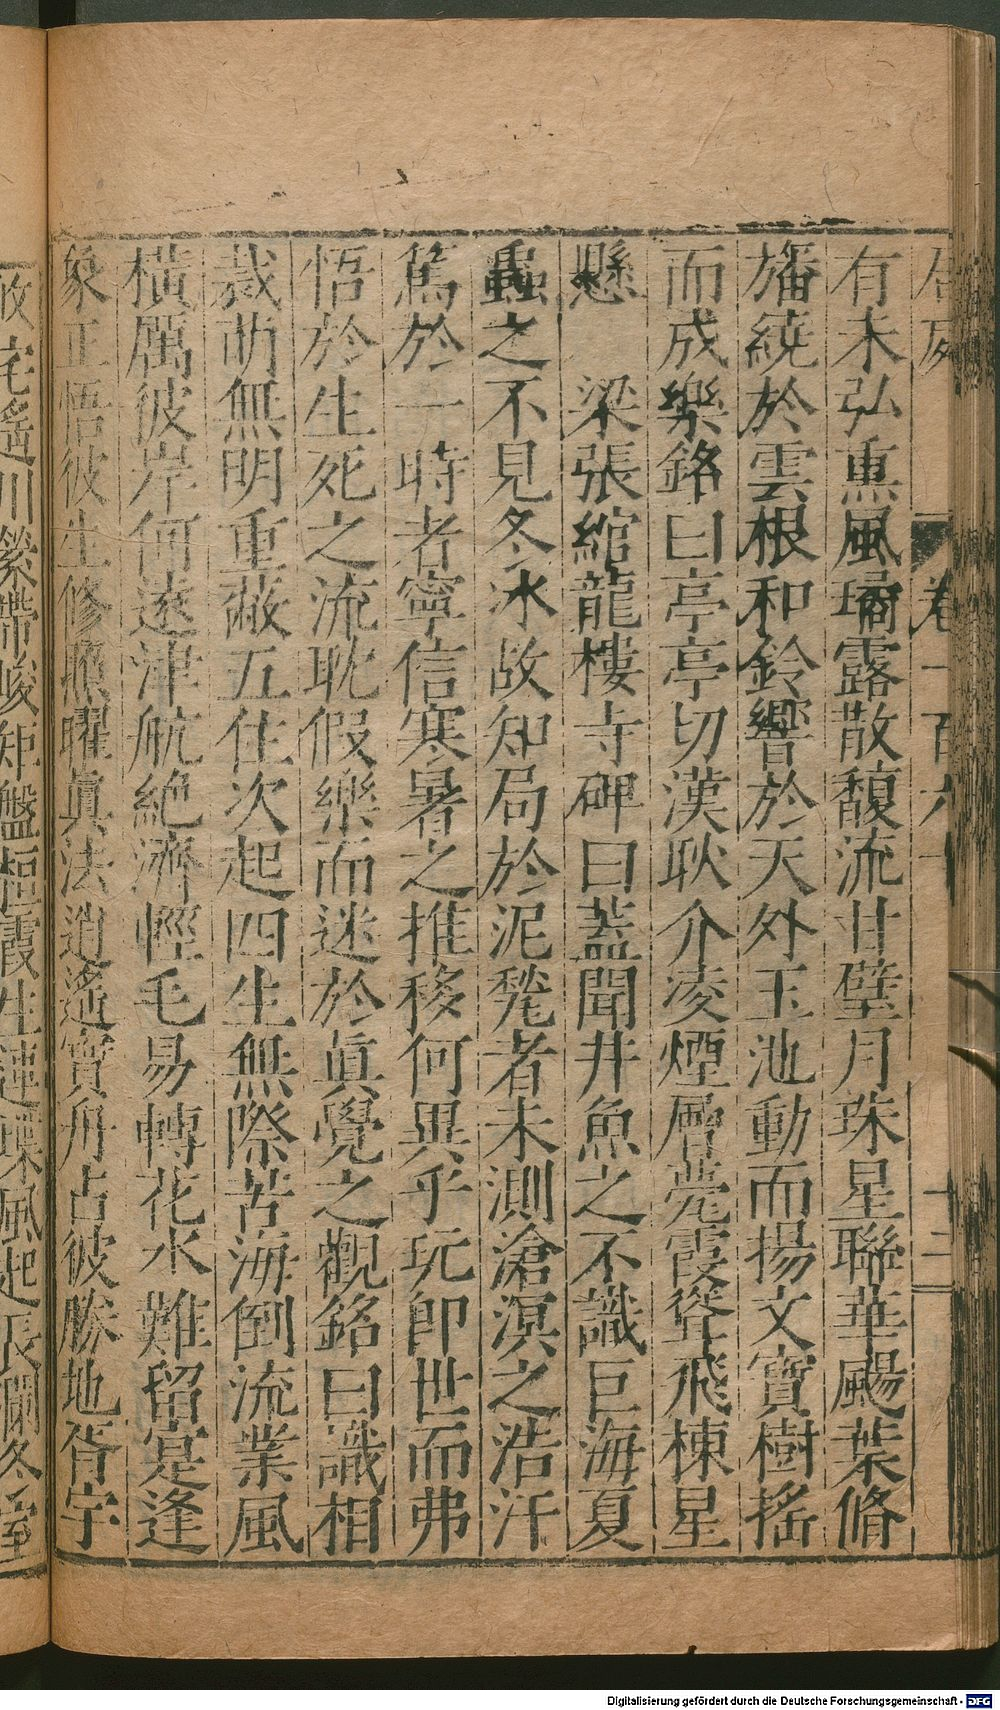 卷一百六十
十二
有未弘熏風瑞露散馥流甘璧月珠星聯華颺葉脩
旛繞於雲根和鈴響於天外玉池動而揚文寶樹搖
而成樂銘曰亭亭切漢耿介凌煙層甍霞聳飛棟星
懸　梁張綰龍樓寺碑曰蓋聞井魚之不識巨海夏
蟲之不見冬冰故知局於泥甃者未測滄溟之浩汗
篤於一時者寧信寒暑之推移何異乎玩即世而弗
悟於生死之流耽假樂而迷於眞覺之觀銘曰識相
裁萌無明重蔽五住次起四生無際苦海倒流業風
橫厲彼岸何遠津航絕濟輕毛易轉花水難留寔逢
象正悟彼生修照曜眞法逍遙寶舟占彼勝地胥宇
攸宅遙川縈帶峻矩盤桓霞生連璞風起長瀾冬室
Digitalisierung gefördert durch die Deutsche Forschungsgemeinschaft - DFG